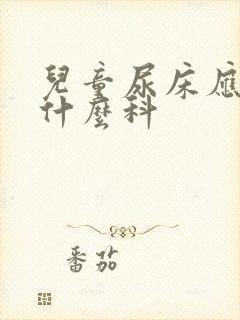 兒童尿床應
什麼科
番茄